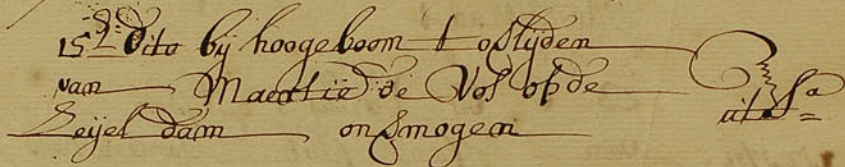 15.de dito bij hoogeboom t oflijden
van Maertie de Vos op de
Zeijel dam onvmogen